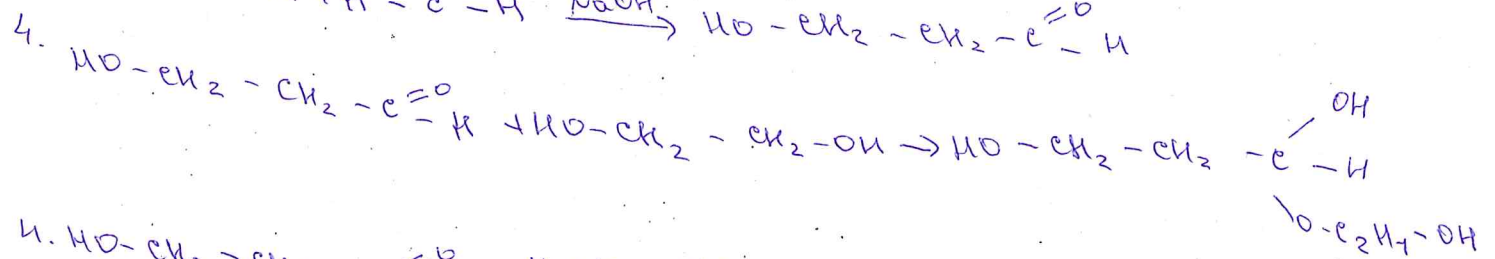 H - C - H NaOH → HO - CH2 - CH2 - C =O - H
4. HO - CH2 - CH2 - C =O - H + HO - CH2 - CH2 - OH → HO - CH2 - CH2 - C - H
OH
O - C2H4 - OH
4. HO - CH2 - CH